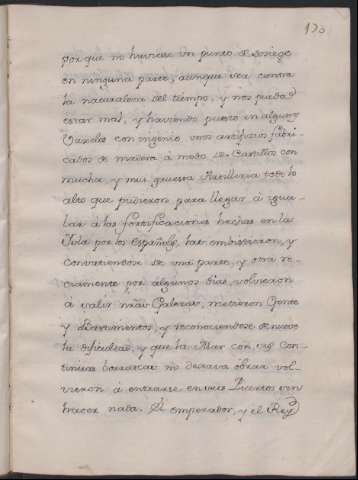 170
por que no huviese un punto de sosiego
en ninguna parte, aunque sea contra
la naturaleza del tiempo, y nos pueda
estar mal, y haviendo puesto en algunos
Vaxeles con ingenio unos artificios fabri-
cados de madera á modo de Castillos con
mucha y mui gruesa Artilleria todo lo
alto que pudieron para llegar á igua-
lar á las fortificaciones hechas en las
Islas por los Españoles, las embistieron, y
convatiendose de una parte, y otra re-
ciamente por algunos dias, volvieron
á salir nr̃as Galeras, metieron Gente
y Bastimentos, y reconociendose de nuevo
la dificultad, y que la Mar con sus con-
tinuas borrascas no dexava obrar vol-
vieron á entrarse en sus Puertos sin
hacer nada. El emperador, y el Rey